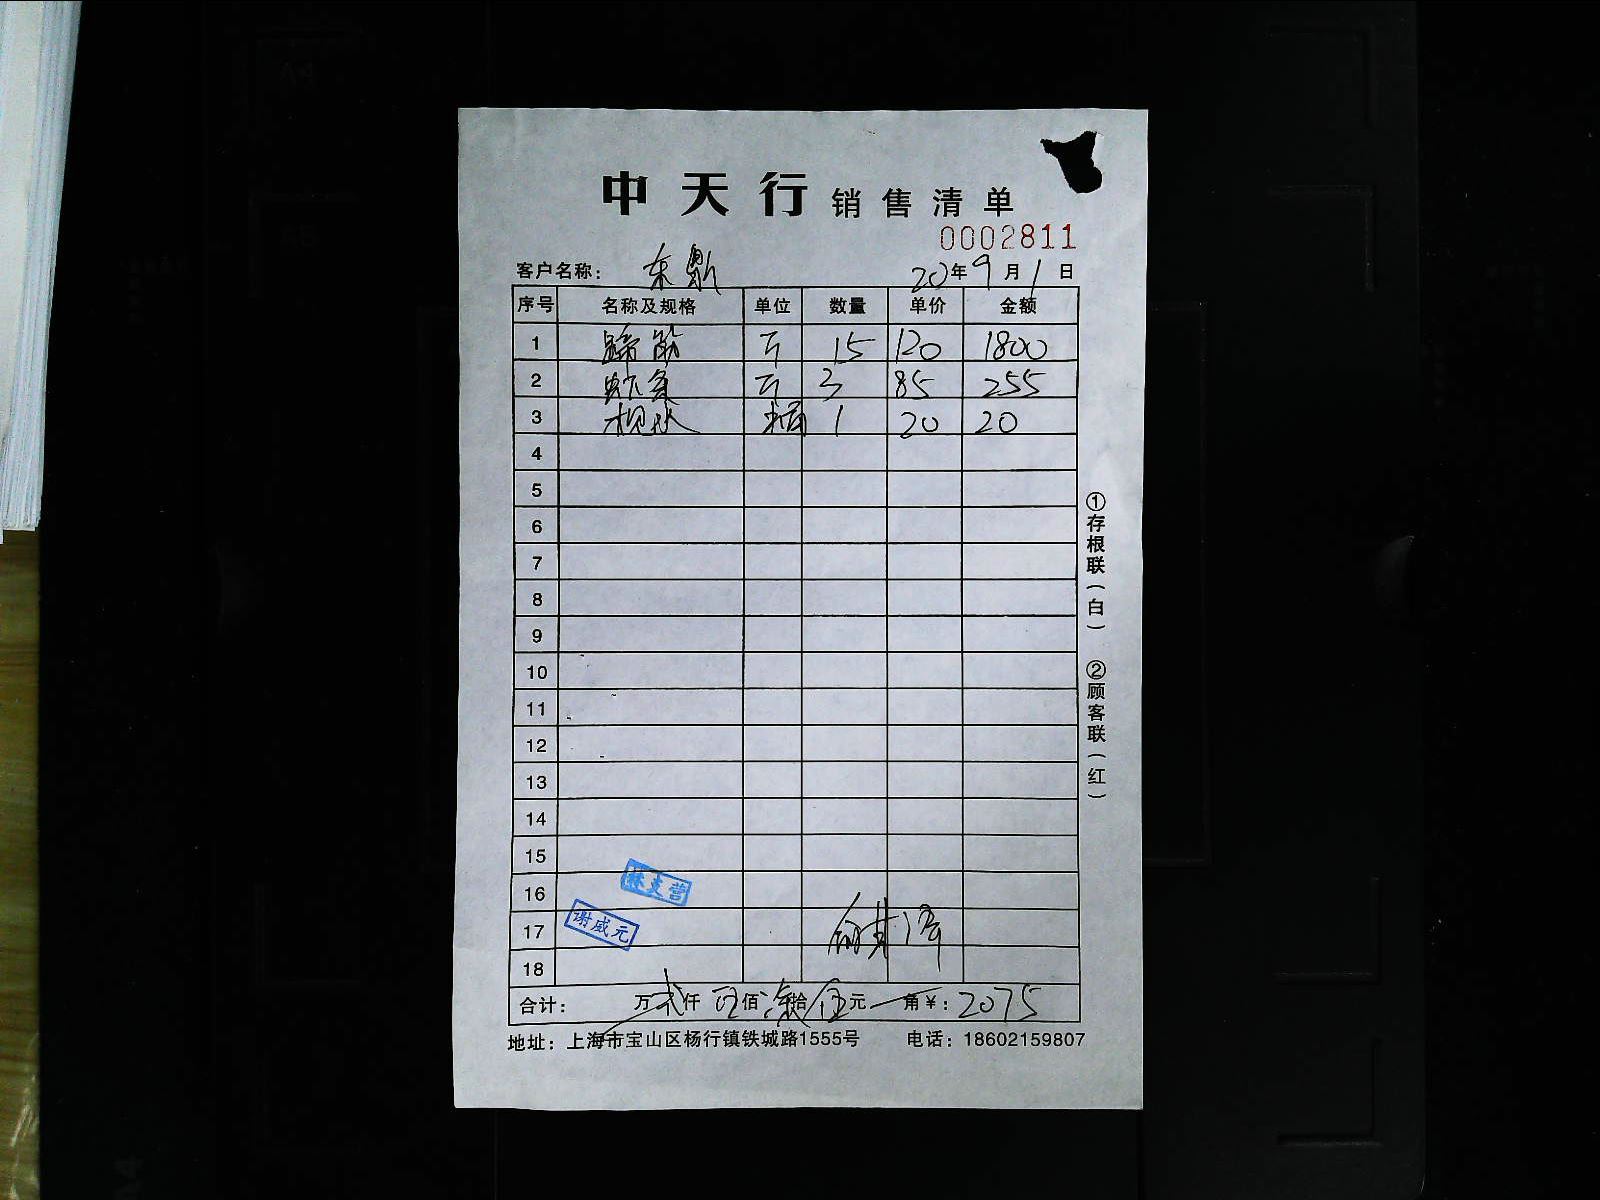 中天行 销售清单
0002811
客户名称： 东鼎 20年9月1日
序号 名称及规格 单位 数量 单价 金额
1 蹄筋 斤 15 120 1800
2 鱼 斤 3 85 255
3 桶 1 20 20
4
5
6
7
8
9
10
11
12
13
14
15
16 林支营
17 谢威元
18
合计： 万贰仟 佰柒拾伍元 角¥：2075
地址：上海市宝山区杨行镇铁城路1555号 电话：18602159807
①存根联（白） ②顾客联（红）